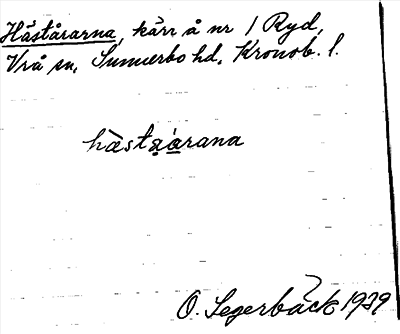 Håstårarna, kärr å nr 1 Ryd,
Vrå sn, Sunnerbo hd, Kronob. l.
håstạårana
O. Segerbäck 1929